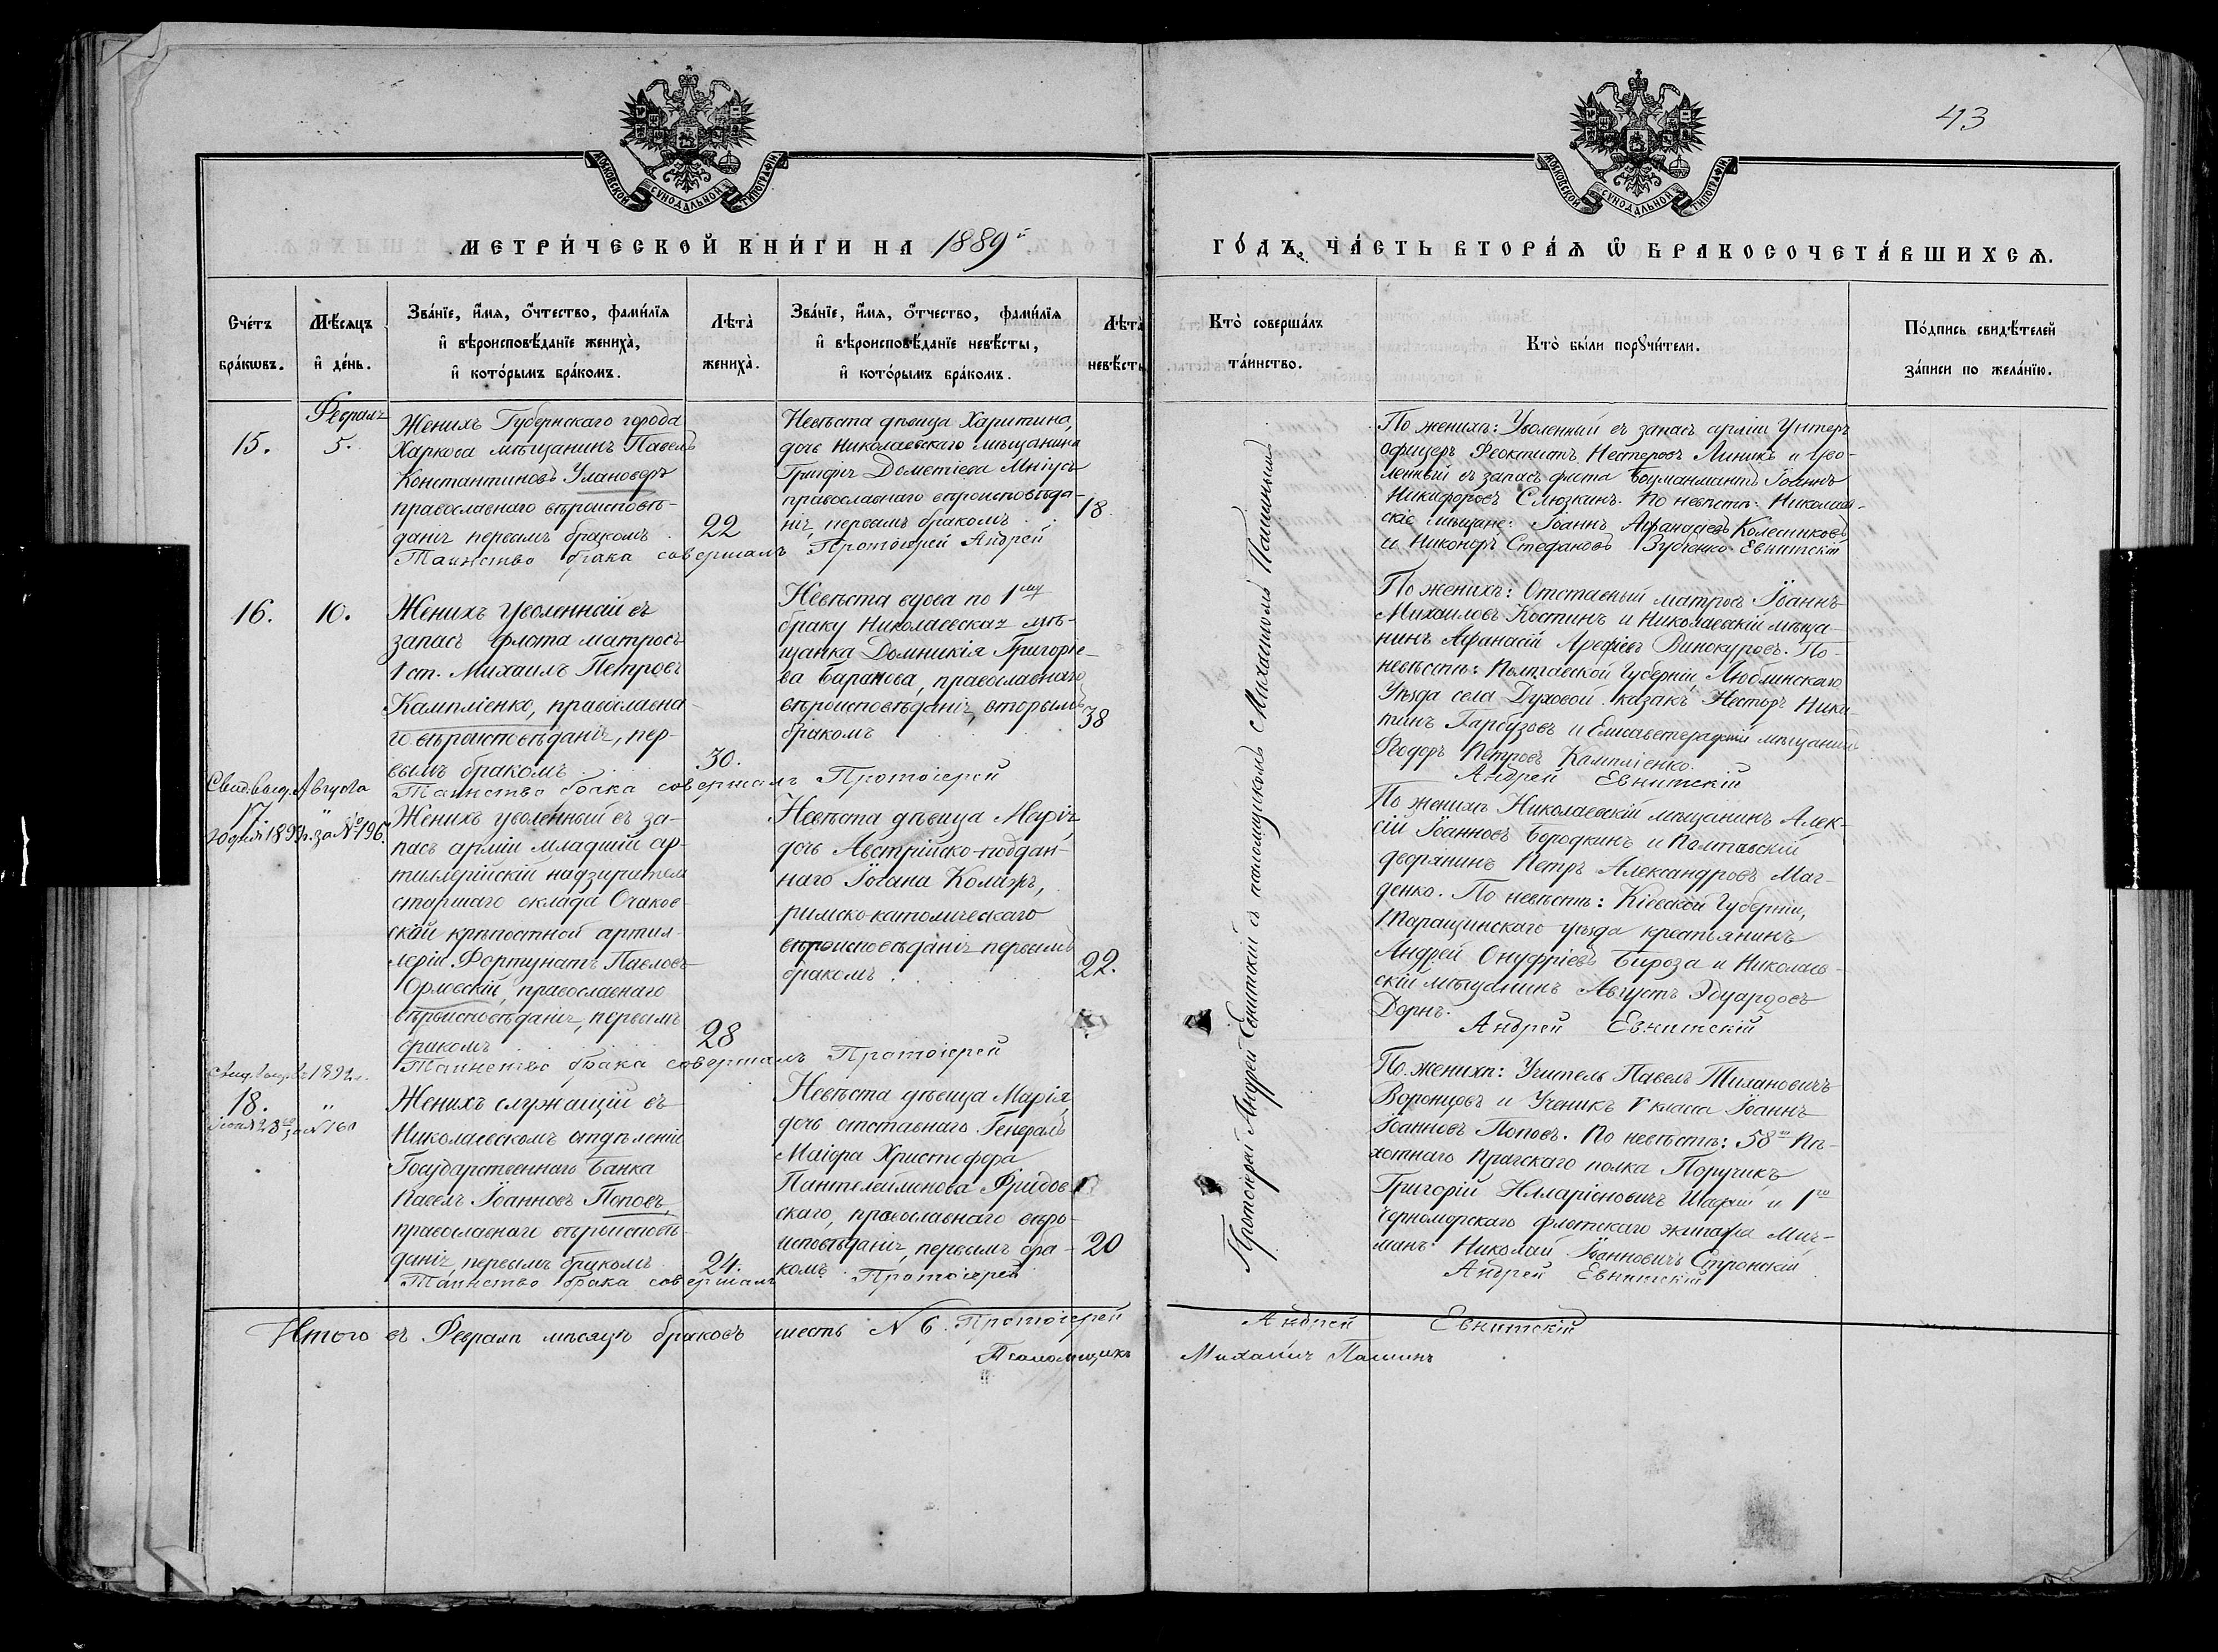 43
МОСКОВСКОЙ СѴНОДАЛЬНОЙ ТИПОГРАФІИ
МОСКОВСКОЙ СѴНОДАЛЬНОЙ ТИПОГРАФІИ
МЕТРИ́ЧЕСКОЙ КНИ́ГИ НА 1889й
ГО́ДЪ, ЧА́СТЬ ВТОРА́Ѧ Ѽ БРАКОСОЧЕТА́ВШИХСѦ.
Сче́тъ
бра́кѡвъ.
Мѣ́сяцъ
и҆ де́нь.
Зва́нїе, и҆́мя, о҆́тчество, фами́лїя
и҆ вѣроисповѣ́данїе жениха̀,
и҆ кото́рымъ бра́комъ.
Лѣ́та̀
жениха̀.
Зва́нїе, и҆́мя, о҆́тчество, фами́лїя
и҆ вѣроисповѣ́данїе невѣ́сты,
и҆ кото́рымъ бра́комъ.
Лѣ́та̀
невѣ́сты
Кто̀ соверша́лъ
та́инство.
Кто̀ бы́ли порꙋчи́тели.
По́дпись свидѣ́телей
за́писи по жела́нїю.
15.
Февраль
5.
Женихъ Губернскаго города
Харкова мѣщанинъ Павелъ
Константиновъ Улановеръ
православнаго вѣроисповѣ-
данія первымъ бракомъ
22
Невѣста дѣвица Харитина,
дочь Николаевскаго мѣщанина
Григорія Дометіева
православнаго вѣроисповѣда-
нія, первымъ бракомъ
18.
Таинство брака совершалъ Протоіерей Андрей
По женихѣ: Уволенный въ запасъ арміи Унтеръ
офицеръ Феоктистъ Нестеровъ Линикъ и уво-
ленный въ запасъ флота Боцманматъ Іоаннъ
Никифоровъ Слюзкинъ. По невѣстѣ: Николаев-
скіе мѣщане: Іоаннъ Афанасіевъ Колесниковъ
и Никоноръ Стефановъ Зубченко Евнитскій
16.
10.
Женихъ уволенный въ
запасъ флота матросъ
1 ст. Михаилъ Петровъ
Кампліенко, православна-
го вѣроисповѣданія, пер-
вымъ бракомъ
30.
Невѣста вдова по 1му
браку Николаевская мѣ-
щанка Домникія Григоріе-
ва Баранова, православнаго
вѣроисповѣданія, вторымъ
бракомъ
38
Таинство брака совершалъ Протоіерей
По женихѣ: Отставный матросъ Іоаннъ
Михаиловъ Костинъ и Николаевскій мѣща-
нинъ Афанасій Арефіевъ Винокуровъ. По
невѣстѣ: Полтавской Губерніи, Люблинскаго
Уѣзда села Духовой казакъ Несторъ Ники-
тинъ Гарбузовъ и Елисаветградскій мѣщанинъ
Феодоръ Петровъ Кампліенко.
Андрей Евнитскій
Свид. выд. Августа
20 дня 189 г. за № 196.
17.
"
Женихъ уволенный въ за-
пасъ арміи младшій ар-
тиллерійскій надзиратель
старшаго оклада Очаков-
ской крѣпостной артил-
леріи Фортунатъ Павловъ
Орловскій, православнаго
вѣроисповѣданія, первымъ
бракомъ
28
Невѣста дѣвица Марія,
дочь Австрійско-поддан-
наго Іогана Коларъ,
римско-католическаго
вѣроисповѣданія первымъ
бракомъ.
22.
Таинство брака совершалъ Протоіерей
По женихѣ Николаевскій мѣщанинъ Алек-
сій Іоанновъ Бородкинъ и Полтавскій
дворянинъ Петръ Александровъ Маг-
денко. По невѣстѣ: Кіевской Губерніи,
Таращинскаго уѣзда крестьянинъ
Андрей Онуфріевъ Бироза и Николаев-
скій мѣщанинъ Августъ Эдуардовъ
Дорнъ.
Андрей Евнитскій
1892 г.
18.
"
Женихъ служащій въ
Николаевскомъ отдѣленіи
Государственнаго Банка
Павелъ Іоанновъ Поповъ,
православнаго вѣроисповѣ-
данія, первымъ бракомъ
24.
Невѣста дѣвица Марія,
дочь отставнаго Генералъ
Маіора Христофора
Пантелеимонова Фридов-
скаго, православнаго вѣро-
исповѣданія, первымъ бра-
комъ
20
Таинство брака совершалъ Протоіерей
По женихѣ: Учитель Павелъ
Воронцовъ и Ученикъ V класса Іоаннъ
Іоанновъ Поповъ. По невѣстѣ: 58го Пѣ-
хотнаго Прагскаго полка Поручикъ
Григорій Илларіоновичъ и 1го
Черноморскаго флотскаго экипажа Мич-
манъ Николай Іоанновичъ Струонскій
Андрей Евнитскій
Протоіерей Андрей Евнитскій съ псаломщикомъ Михаиломъ Пашинымъ
Итого въ Февралѣ мѣсяцѣ браковъ шесть № 6. Протоіерей Андрей Евнитскій
Псаломщикъ Михаилъ Пашинъ